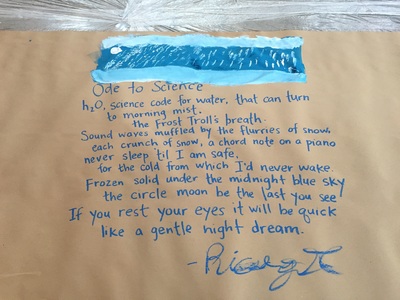 Ode to Science
h₂O, science code for water, that can turn
to morning mist.
the Frost Troll's breath.
Sound waves muffled by the flurries of snow,
each crunch of snow, a chord note on a piano
never sleep 'til I am safe,
for the cold from which I'd never wake.
Frozen solid under the midnight blue sky
the circle moon be the last you see
If you rest your eyes it will be quick
like a gentle night dream.